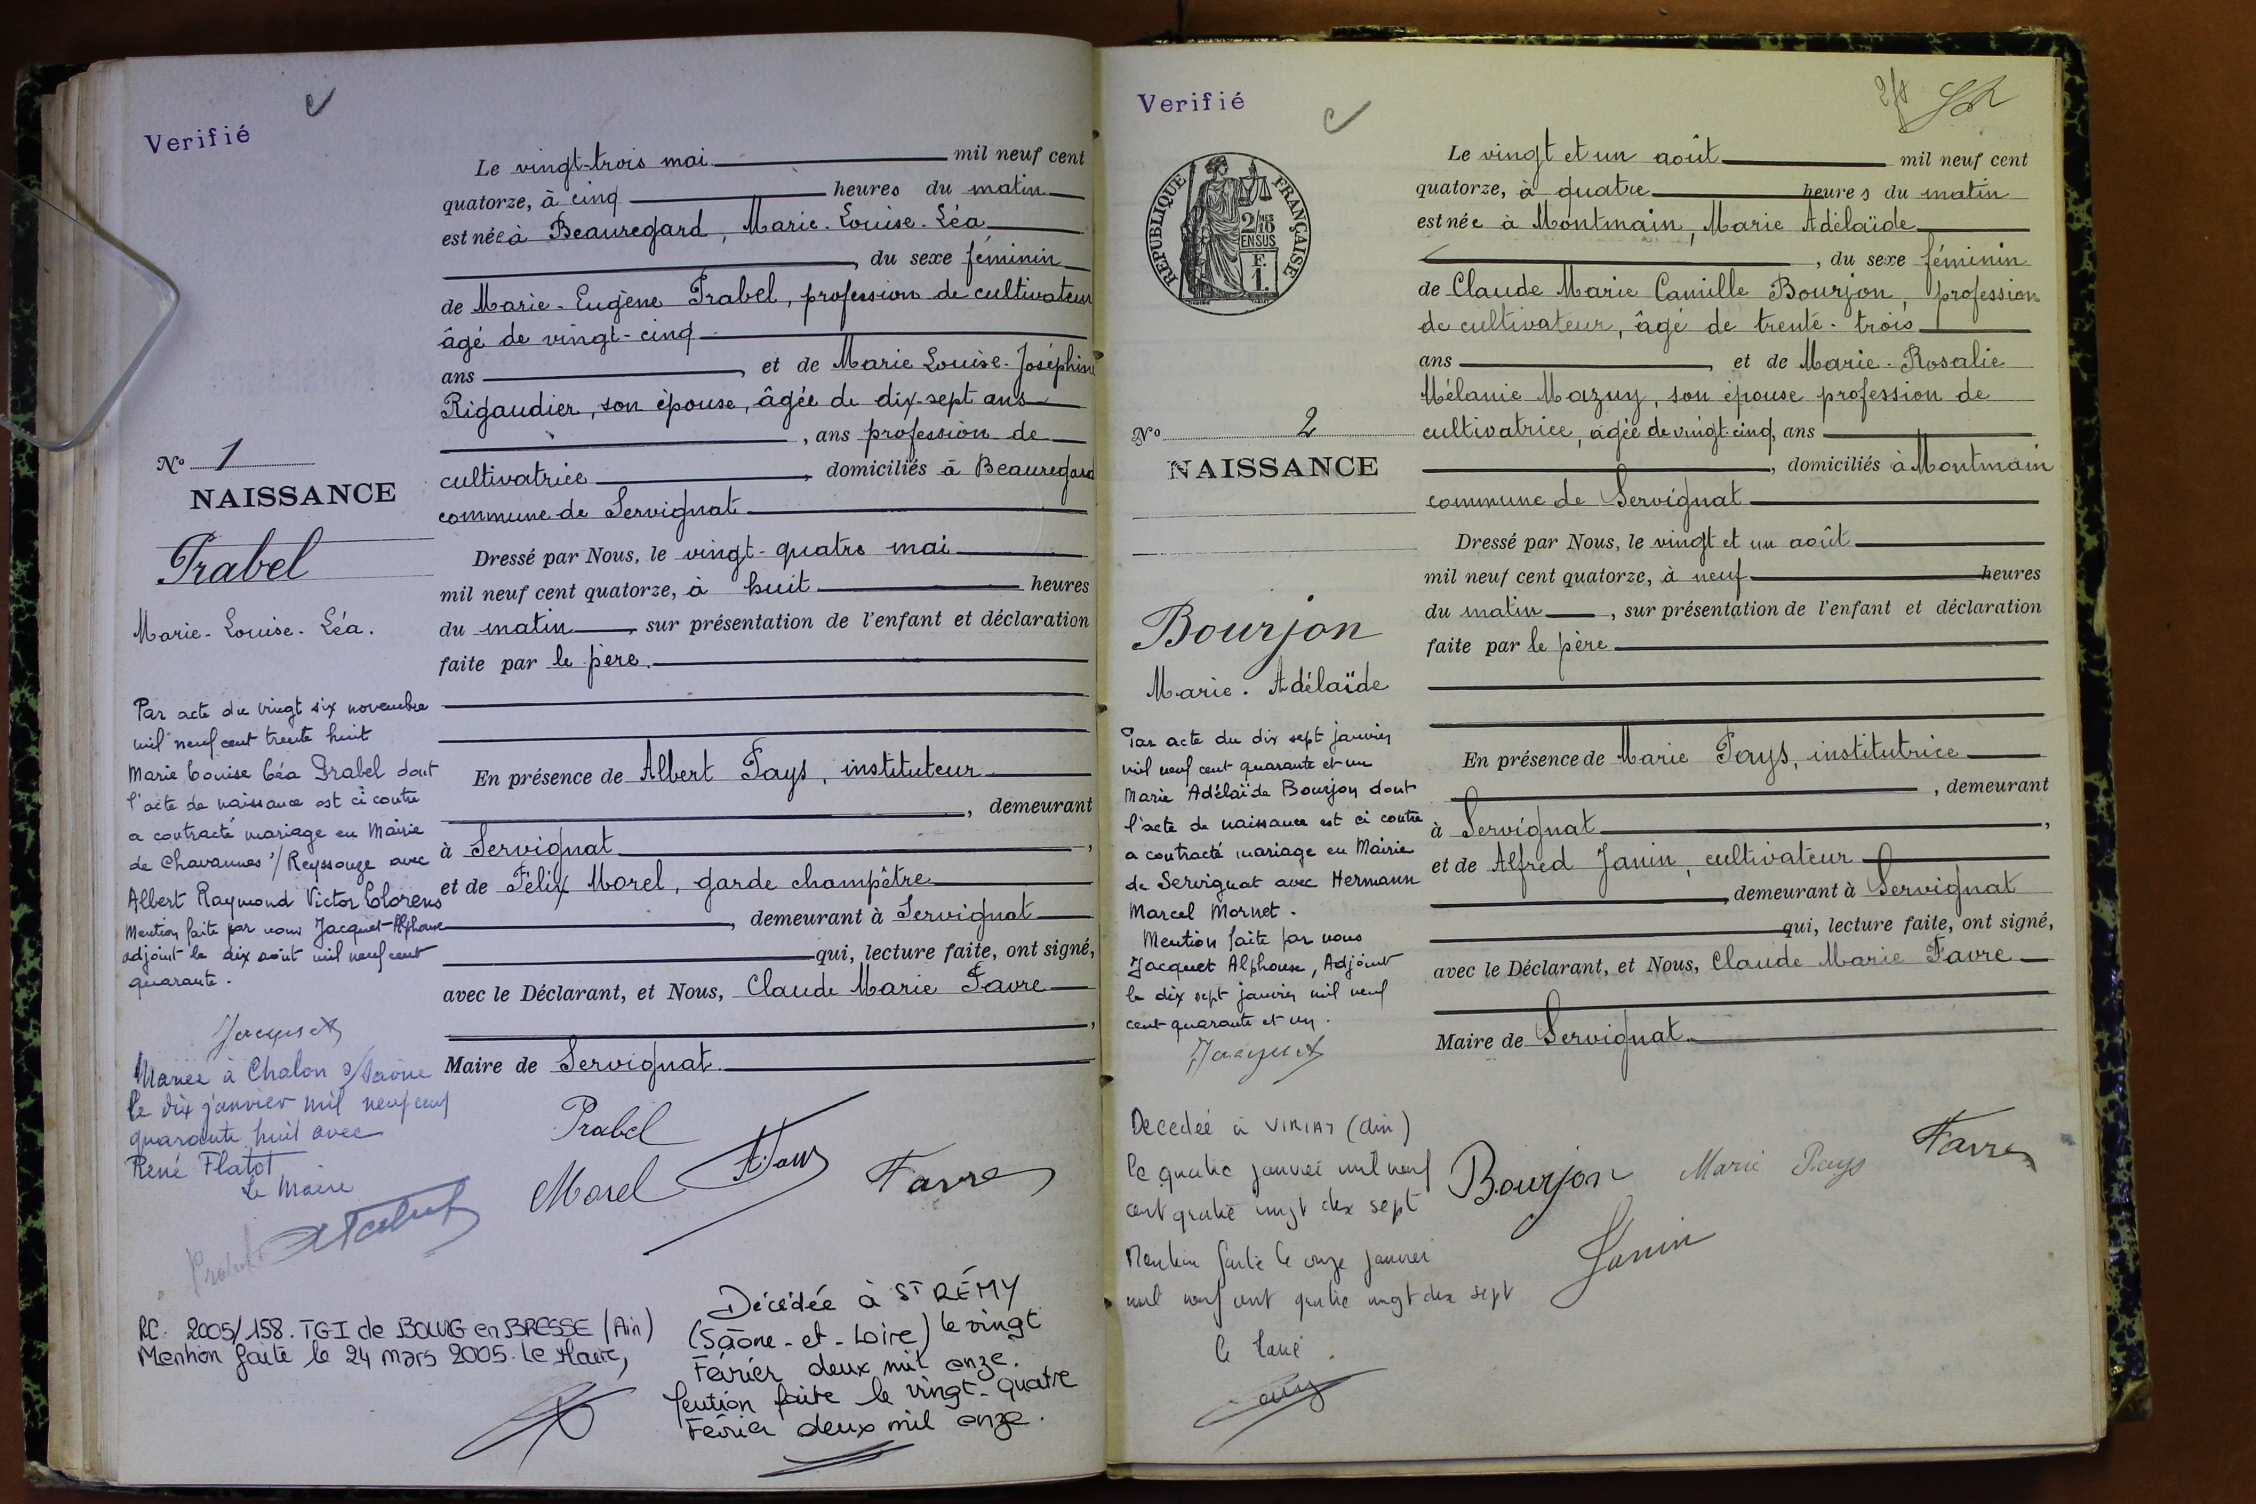 Verifié
Le vingt-trois mai mil neuf cent
quatorze, à cinq heures du matin
est née à Beauregard, Marie-Louise-Léa
, du sexe féminin
de Marie-Eugène Prabel, profession de cultivateur
âgé de vingt-cinq
ans , et de Marie Louise-Joséphine
Rigaudier, son épouse, âgée de dix-sept ans
, ans profession de
cultivatrice , domiciliés à Beauregard
commune de Servignat
Dressé par Nous, le vingt-quatre mai
mil neuf cent quatorze, à huit heures
du matin , sur présentation de l'enfant et déclaration
faite par le père.
En présence de Albert Pays, instituteur
, demeurant
à Servignat ,
et de Félix Morel, garde champêtre
, demeurant à Servignat
qui, lecture faite, ont signé,
avec le Déclarant, et Nous, Claude Marie Favre
,
Maire de Servignat.
Prabel
Morel
Favre
No 1
NAISSANCE
Prabel
Marie-Louise-Léa.
Par acte du vingt six novembre
mil neuf cent trente huit
Marie Louise Léa Prabel dont
l'acte de naissance est ci contre
a contracté mariage en Mairie
de Chavannes s/Reyssouze avec
Albert Raymond Victor Clorens
Mention faite par nous Jacquet Alphonse
adjoint le dix août mil neuf cent
quarante.
Jacquet
Mariée à Chalon s/Saône
le dix janvier mil neuf cent
quarante huit avec
René Flatot
Le Maire
RC. 2005/158. TGI de BOURG en BRESSE (Ain)
Mention faite le 24 mars 2005. Le Maire,
Décédée à ST RÉMY
(Saône-et-Loire) le vingt
Février deux mil onze.
Mention faite le vingt-quatre
Février deux mil onze.
Verifié
RÉPUBLIQUE FRANÇAISE
2/MES
10
EN SUS
F.
1.
Le vingt et un août mil neuf cent
quatorze, à quatre heures du matin
est née à Montmain, Marie Adélaïde
, du sexe féminin
de Claude Marie Camille Bourjon, profession
de cultivateur, âgé de trente-trois
ans , et de Marie-Rosalie
Mélanie Mazuy, son épouse profession de
cultivatrice, âgée de vingt-cinq, ans
, domiciliés à Montmain
commune de Servignat
Dressé par Nous, le vingt et un août
mil neuf cent quatorze, à neuf heures
du matin , sur présentation de l'enfant et déclaration
faite par le père
En présence de Marie Pays, institutrice
, demeurant
à Servignat ,
et de Alfred Janin, cultivateur
, demeurant à Servignat
qui, lecture faite, ont signé,
avec le Déclarant, et Nous, Claude Marie Favre
Maire de Servignat.
Bourjon
Marie Pays
Favre
Janin
No 2
NAISSANCE
Bourjon
Marie. Adélaïde
Par acte du dix sept janvier
mil neuf cent quarante et un
Marie Adélaïde Bourjon dont
l'acte de naissance est ci contre
a contracté mariage en Mairie
de Servignat avec Hermann
Marcel Mornet.
Mention faite par nous
Jacquet Alphonse, Adjoint
le dix sept janvier mil neuf
cent quarante et un.
Jacquet
Decedée à VIRIAT (Ain)
le quatre janvier mil neuf
cent quatre vingt dix sept
Mention faite le onze janvier
mil neuf cent quatre vingt dix sept
le Maire